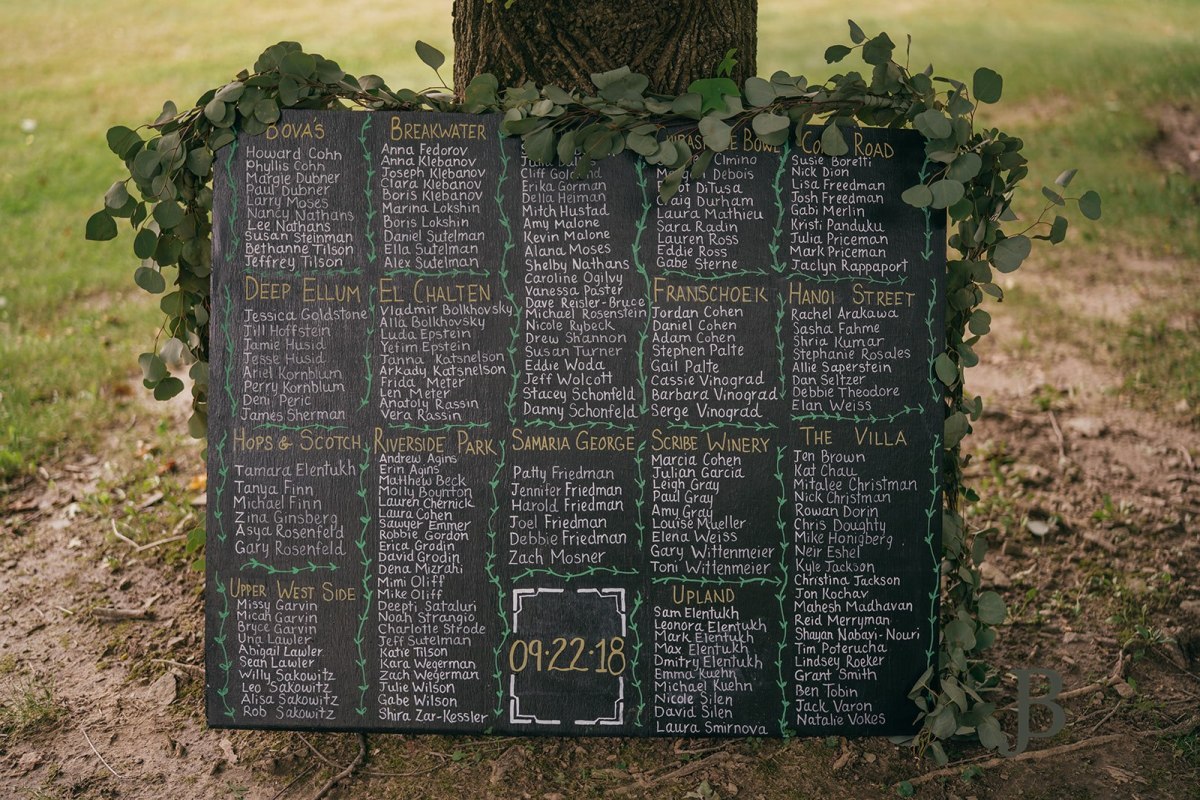 BOVA'S
Howard Cohn
Phyllis Cohn
Margie Dubner
Paul Dubner
Larry Moses
Nancy Nathans
Lee Nathans
Susan Steinman
Bethanne Tilson
Jeffrey Tilson
BREAKWATER
Anna Fedorov
Anna Klebanov
Joseph Klebanov
Clara Klebanov
Boris Klebanov
Marina Lokshin
Boris Lokshin
Daniel Sutelman
Ella Sutelman
Alex Sutelman
Cliff
Erika Gorman
Bella Heiman
Mitch Hustad
Amy Malone
Kevin Malone
Alana Moses
Shelby Nathans
Caroline Ogilvy
Vanessa Paster
Dave Reisler-Bruce
Michael Rosenstein
Nicole Rybeck
Drew Shannon
Susan Turner
Eddie Woda
Jeff Wolcott
Stacey Schonfeld
Danny Schonfeld
BOWL
Cimino
Debois
DiTusa
Craig Durham
Laura Mathieu
Sara Radin
Lauren Ross
Eddie Ross
Gabe Sterne
ROAD
Susie Boretti
Nick Dion
Lisa Freedman
Josh Freedman
Gabi Merlin
Kristi Panduku
Julia Priceman
Mark Priceman
Jaclyn Rappaport
DEEP ELLUM
Jessica Goldstone
Jill Hoffstein
Jamie Husid
Jesse Husid
Ariel Kornblum
Perry Kornblum
Deni Peric
James Sherman
EL CHALTEN
Vladmir Bolkhovsky
Alla Bolkhovsky
Luda Epstein
Yefim Epstein
Janna Katsnelson
Arkady Katsnelson
Frida Meter
Len Meter
Anatoly Rassin
Vera Rassin
FRANSCHOEK
Jordan Cohen
Daniel Cohen
Adam Cohen
Stephen Palte
Gail Palte
Cassie Vinograd
Barbara Vinograd
Serge Vinograd
HANOI STREET
Rachel Arakawa
Sasha Fahme
Shria Kumar
Stephanie Rosales
Allie Saperstein
Dan Seltzer
Debbie Theodore
Elan Weiss
HOPS & SCOTCH
Tamara Elentukh
Tanya Finn
Michael Finn
Zina Ginsberg
Asya Rosenfeld
Gary Rosenfeld
UPPER WEST SIDE
Missy Garvin
Micah Garvin
Bryce Garvin
Una Lawler
Abigail Lawler
Sean Lawler
Willy Sakowitz
Leo Sakowitz
Alisa Sakowitz
Rob Sakowitz
RIVERSIDE PARK
Andrew Agins
Erin Agins
Matthew Beck
Molly Boynton
Lauren Chernick
Laura Cohen
Sawyer Emmer
Robbie Gordon
Erica Grodin
David Grodin
Dena Mizrahi
Mimi Oliff
Mike Oliff
Deepti Sataluri
Noah Strangio
Charlotte Strode
Jeff Sutelman
Katie Tilson
Kara Wegerman
Zach Wegerman
Julie Wilson
Gabe Wilson
Shira Zar-Kessler
SAMARIA GEORGE
Patty Friedman
Jennifer Friedman
Harold Friedman
Joel Friedman
Debbie Friedman
Zach Mosner
09.22.18
SCRIBE WINERY
Marcia Cohen
Julian Garcia
Leigh Gray
Paul Gray
Amy Gray
Louise Mueller
Elena Weiss
Gary Wittenmeier
Toni Wittenmeier
UPLAND
Sam Elentukh
Leonora Elentukh
Mark Elentukh
Max Elentukh
Dmitry Elentukh
Emma Kuehn
Michael Kuehn
Nicole Silen
David Silen
Laura Smirnova
THE VILLA
Jen Brown
Kat Chau
Mitalee Christman
Nick Christman
Rowan Dorin
Chris Doughty
Mike Honigberg
Neir Eshel
Kyle Jackson
Christina Jackson
Jon Kochav
Mahesh Madhavan
Reid Merryman
Shayan Nabavi-Nouri
Tim Poterucha
Lindsey Roeker
Grant Smith
Ben Tobin
Jack Varon
Natalie Vokes
JB